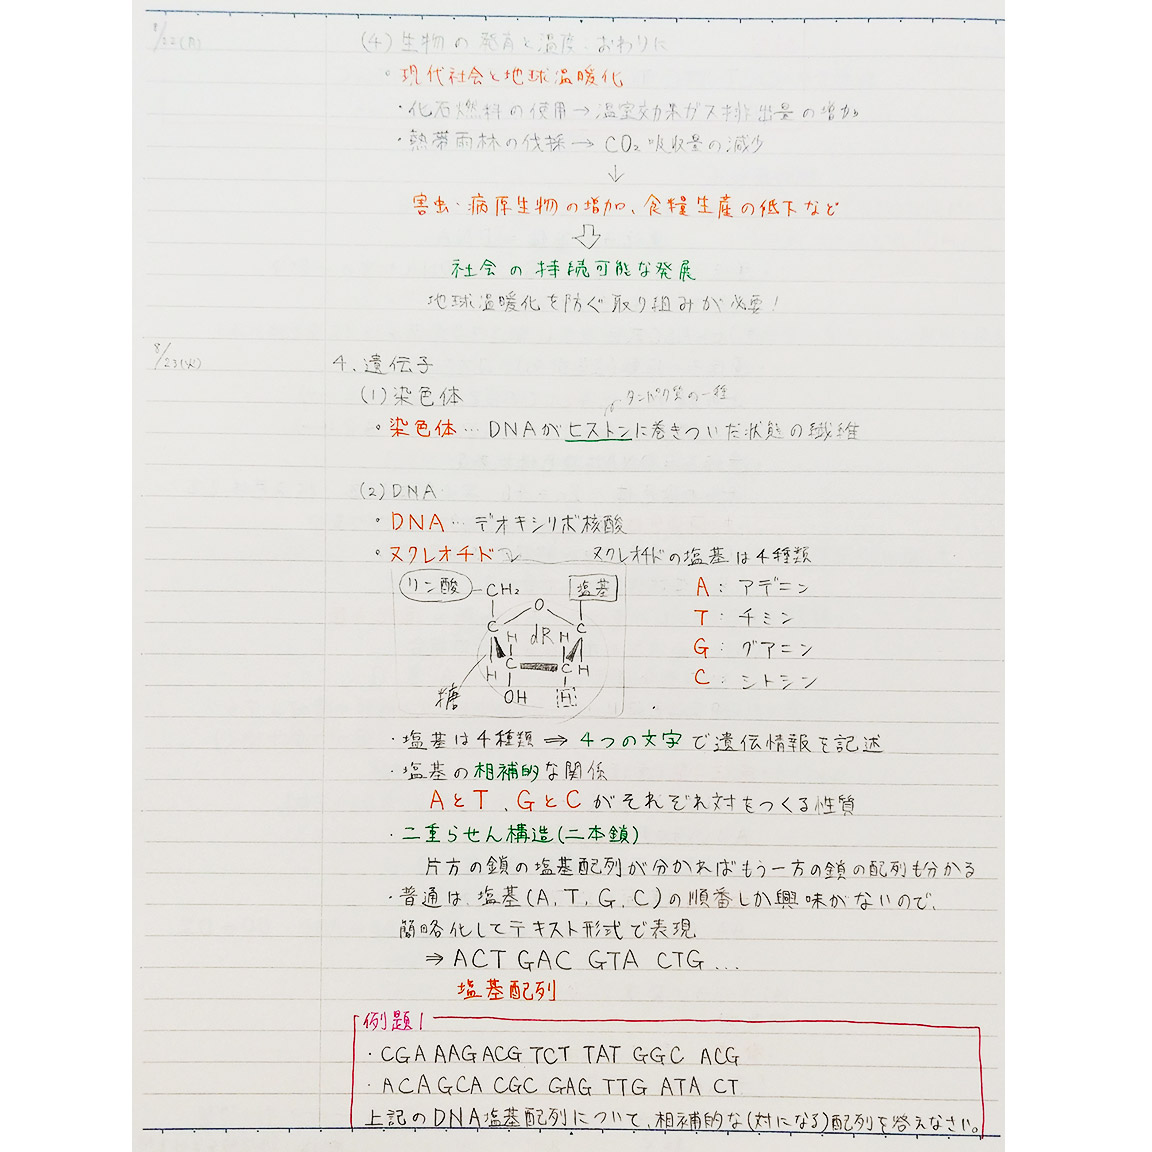 8/22(月)
(4) 生物の発育と温度 おわりに
・現代社会と地球温暖化
・化石燃料の使用→温室効果ガス排出量の増加
・熱帯雨林の伐採→CO₂吸収量の減少
↓
害虫・病原生物の増加、食糧生産の低下など
⇩
社会の持続可能な発展
地球温暖化を防ぐ取り組みが必要!
8/23(火)
4.遺伝子
(1)染色体
タンパク質の一種
・染色体…DNAがヒストンに巻きついた状態の繊維
(2)DNA
・DNA…デオキシリボ核酸
・ヌクレオチド
ヌクレオチドの塩基は4種類
リン酸 CH₂ 塩基
O
C H dR H C
H C C H
OH H
糖
A:アデニン
T:チミン
G:グアニン
C:シトシン
・塩基は4種類⇒4つの文字で遺伝情報を記述
・塩基の相補的な関係
AとT、GとCがそれぞれ対をつくる性質
・二重らせん構造(二本鎖)
片方の鎖の塩基配列が分かればもう一方の鎖の配列も分かる
・普通は、塩基(A,T,G,C)の順番しか興味がないので、
簡略化してテキスト形式で表現
⇒ACT GAC GTA CTG...
塩基配列
例題1
・CGA AAG ACG TCT TAT GGC ACG
・ACA GCA CGC GAG TTG ATA CT
上記のDNA塩基配列について、相補的な(対になる)配列を答えなさい。